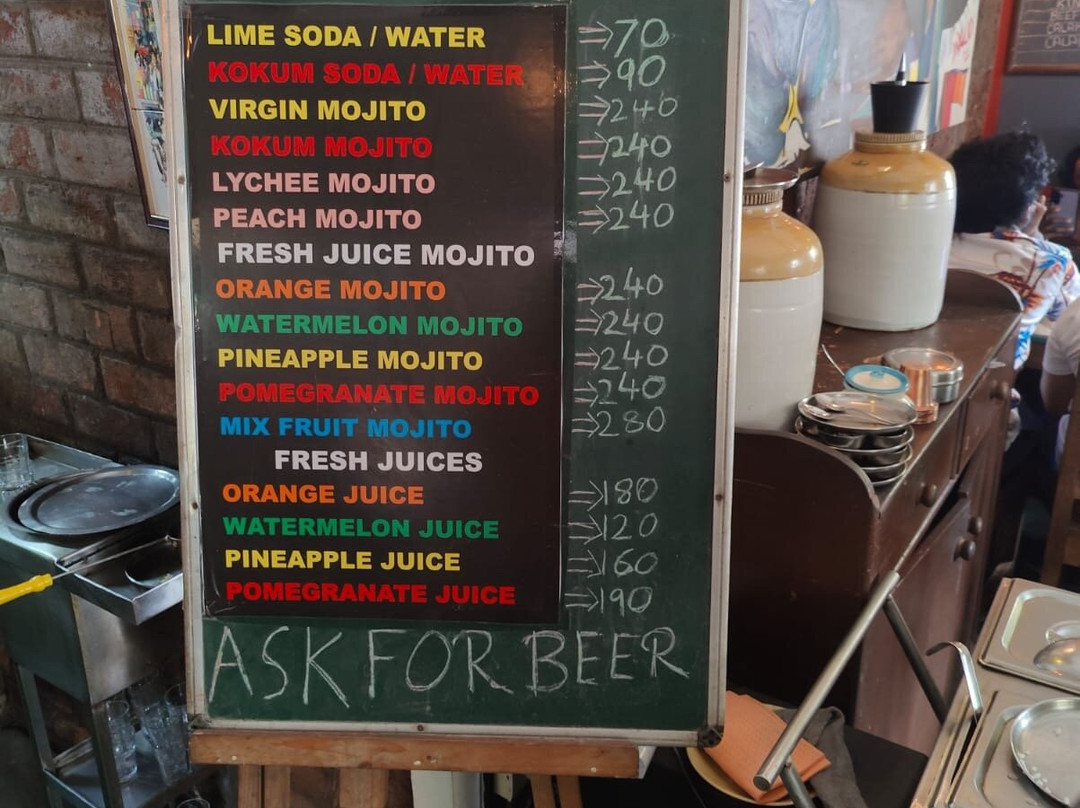 LIME SODA / WATER ⇒70
KOKUM SODA / WATER ⇒90
VIRGIN MOJITO ⇒240
KOKUM MOJITO ⇒240
LYCHEE MOJITO ⇒240
PEACH MOJITO ⇒240
FRESH JUICE MOJITO
ORANGE MOJITO ⇒240
WATERMELON MOJITO ⇒240
PINEAPPLE MOJITO ⇒240
POMEGRANATE MOJITO ⇒240
MIX FRUIT MOJITO ⇒280
FRESH JUICES
ORANGE JUICE ⇒180
WATERMELON JUICE ⇒120
PINEAPPLE JUICE ⇒160
POMEGRANATE JUICE ⇒190
ASK FOR BEER